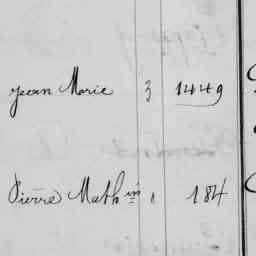 Jean Marie 3 1449
Pierre Math in 1 184